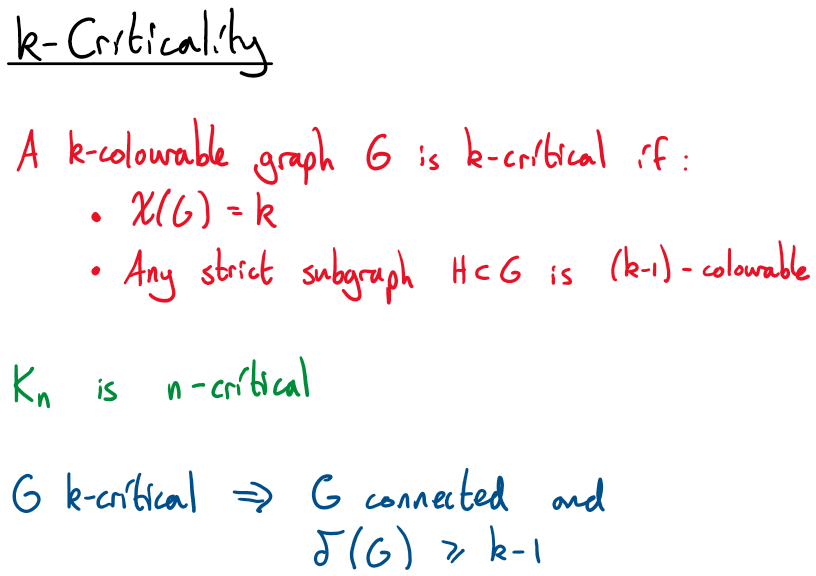 k-Criticality
A k-colourable graph G is k-critical if:
• χ(G) = k
• Any strict subgraph H⊂G is (k-1)-colourable
Kₙ is n-critical
G k-critical ⇒ G connected and
δ(G) ⩾ k-1